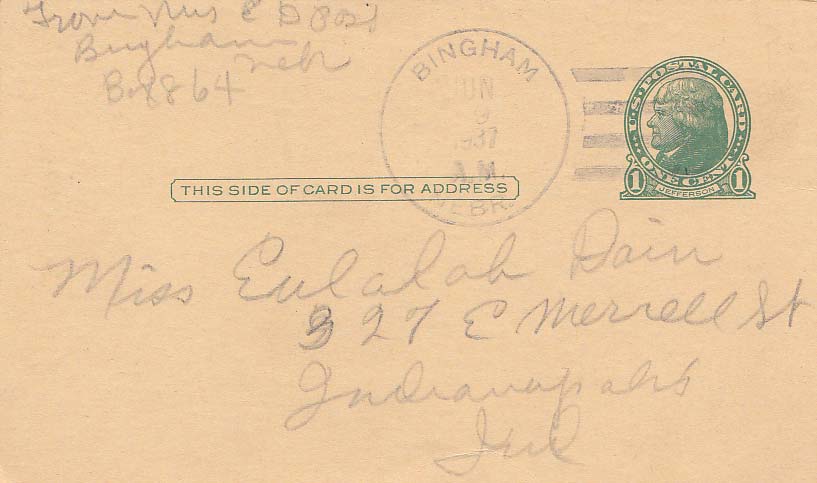 From Mrs E D Post
Bingham
Nebr
B.8864
BINGHAM
JUN
9
1937
A.M.
NEBR.
U.S. POSTAL CARD
ONE CENT
1 JEFFERSON 1
THIS SIDE OF CARD IS FOR ADDRESS
Miss Eulalah Dain
327 E Merrell St
Indianapolis
Ind